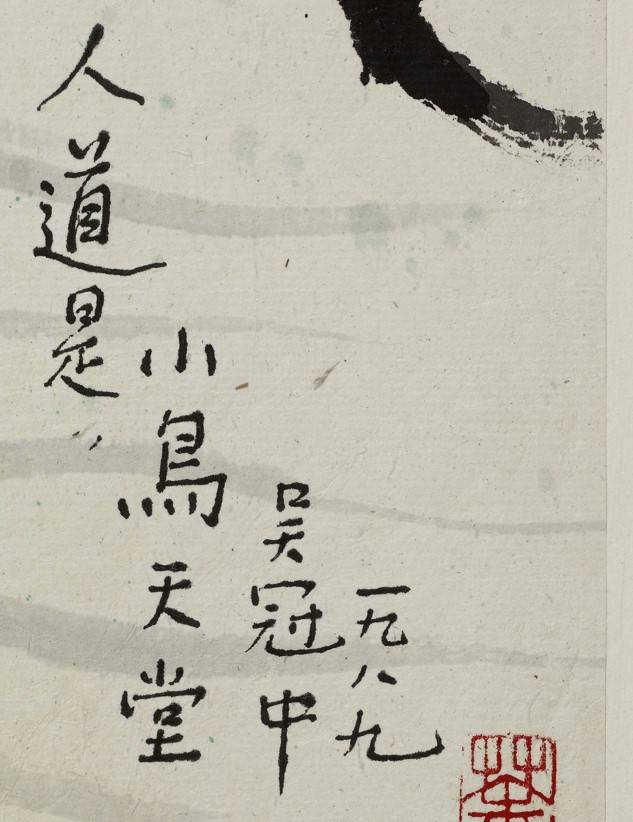 人道是〃
小鳥天堂
吴冠中
一九八九
荼